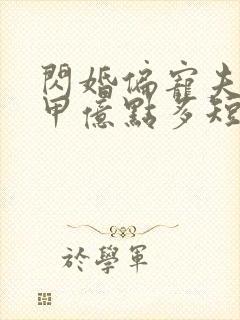 閃婚偏寵夫
甲億點多短
於學軍